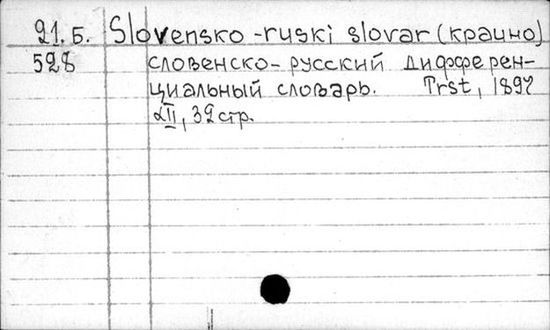 21. Б. Slovensko-ruski slovar (краино)
528 словенско-русский дифферен-
циальный словарь. Trst, 1897
II, 32 стр.